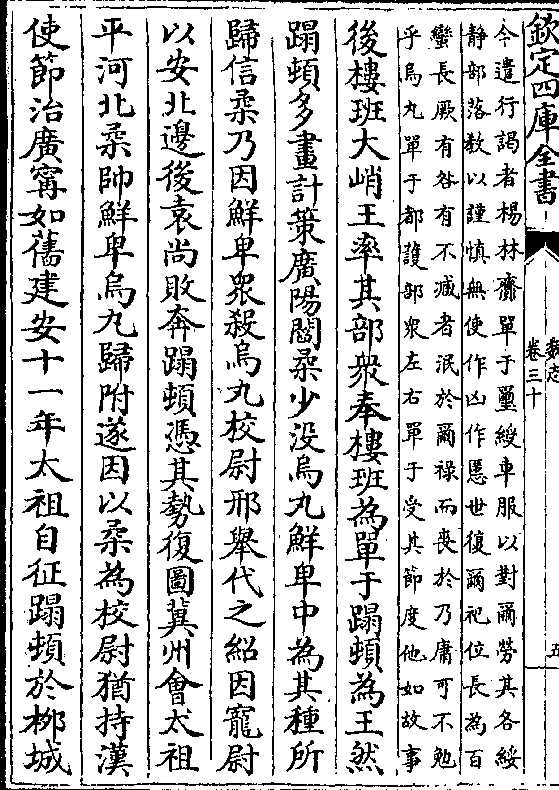 欽定四庫全書
魏志
卷三十
五
今遣行謁者楊林齎單于璽綬車服以對爾勞其各綏
静部落教以謹慎無使作凶作慝世復爾祀位長為百
蠻長厥有咎有不臧者泯於爾祿而喪於乃庸可不勉
乎烏丸單于都護部衆左右單于受其節度他如故事
後樓班大峭王率其部衆奉樓班為單于蹋頓為王然
蹋頓多畫計策廣陽閻柔少没烏丸鮮卑中為其種所
歸信柔乃因鮮卑衆殺烏丸校尉邢舉代之紹因寵尉
以安北邊後袁尚敗奔蹋頓憑其勢復圖冀州會太祖
平河北柔帥鮮卑烏丸歸附遂因以柔為校尉猶持漢
使節治廣甯如舊建安十一年太祖自征蹋頓於栁城